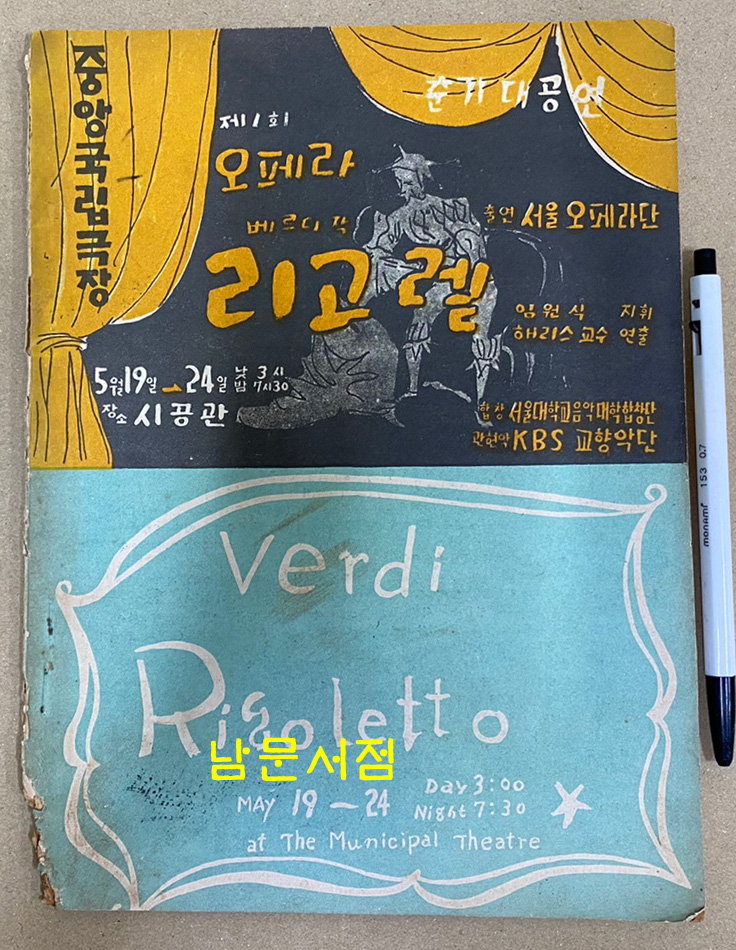 중앙국립극장
춘기대공연
제1회
오페라
베르디 작
리고렛
출연 서울 오페라단
임원식 지휘
해리스 교수 연출
5월19일 - 24일 낮 3시 밤 7시30
장소 시공관
합창 서울대학교음악대학합창단
관현악 KBS 교향악단
Verdi
Rigoletto
남문서점
MAY 19 - 24 Day 3:00
Night 7:30
at The Municipal Theatre
monami 153 0.7